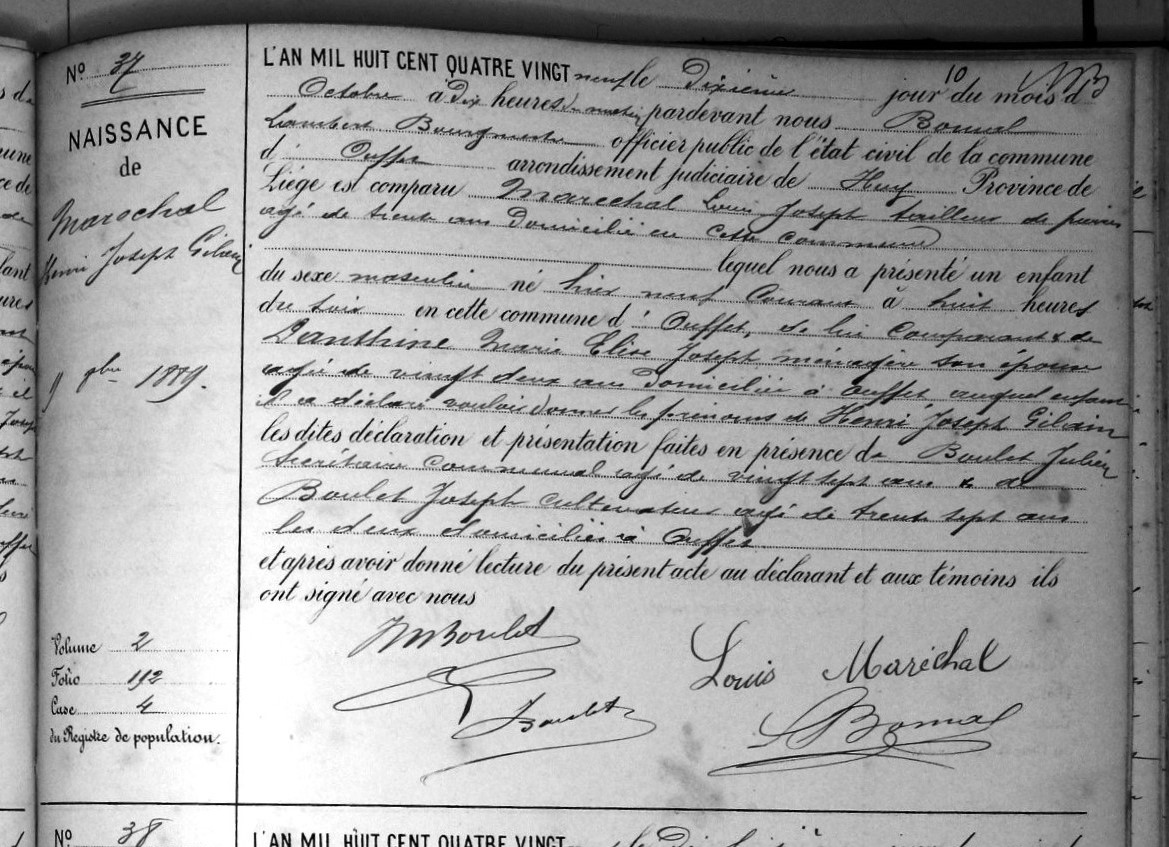 Nº 37
NAISSANCE
de
Marechal
Henri Joseph Gilain
9 9bre 1889.
Volume 2
Folio 192
Case 4
du Registre de population.
L'AN MIL HUIT CENT QUATRE VINGT neuf le Dixième 10 jour du mois d
Octobre à Dix heures du matin pardevant nous Bomal
Lambert Bourgmestre officier public de l'état civil de la commune
d' Ouffet arrondissement judiciaire de Huy Province de
Liége est comparu Marechal Louis Joseph tailleur de pierres
agé de trente ans Domicilié en cette commune
lequel nous a présenté un enfant
du sexe masculin né hier neuf courant à huit heures
du soir en cette commune d' Ouffet, de lui comparant & de
Danthine Marie Elise Joseph ménagère son épouse
agée de vingt deux ans Domiciliée à Ouffet auquel enfant
il a déclaré vouloir donner les prénoms de Henri Joseph Gilain
les dites déclaration et présentation faites en présence de Boulet Julien
Secrétaire communal agé de vingt sept ans & de
Boulet Joseph cultivateur agé de trente sept ans
les deux domiciliés à Ouffet
et après avoir donné lecture du présent acte au déclarant et aux témoins ils
ont signé avec nous
Boulet
Louis Maréchal
Boulet
Bomal
Nº 38
L'AN MIL HUIT CENT QUATRE VINGT